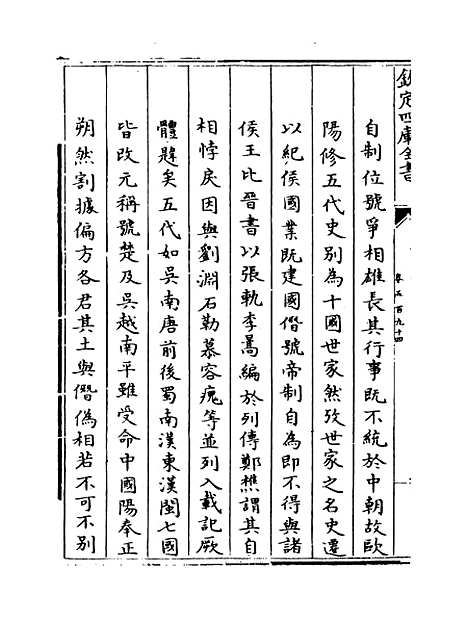 欽定四庫全書
卷五百九十四
自制位號爭相雄長其行事既不統於中朝故歐
陽修五代史別為十國世家然攷世家之名史遷
以紀侯國業既建國僭號帝制自為即不得與諸
侯王比晉書以張軌李暠編於列傳鄭樵謂其自
相悖戾因與劉淵石勒慕容廆等並列入載記厥
體韙矣五代如吳南唐前後蜀南漢東漢閩七國
皆改元稱號楚及吳越南平雖受命中國陽奉正
朔然割據偏方各君其土與僭偽相若不可不別